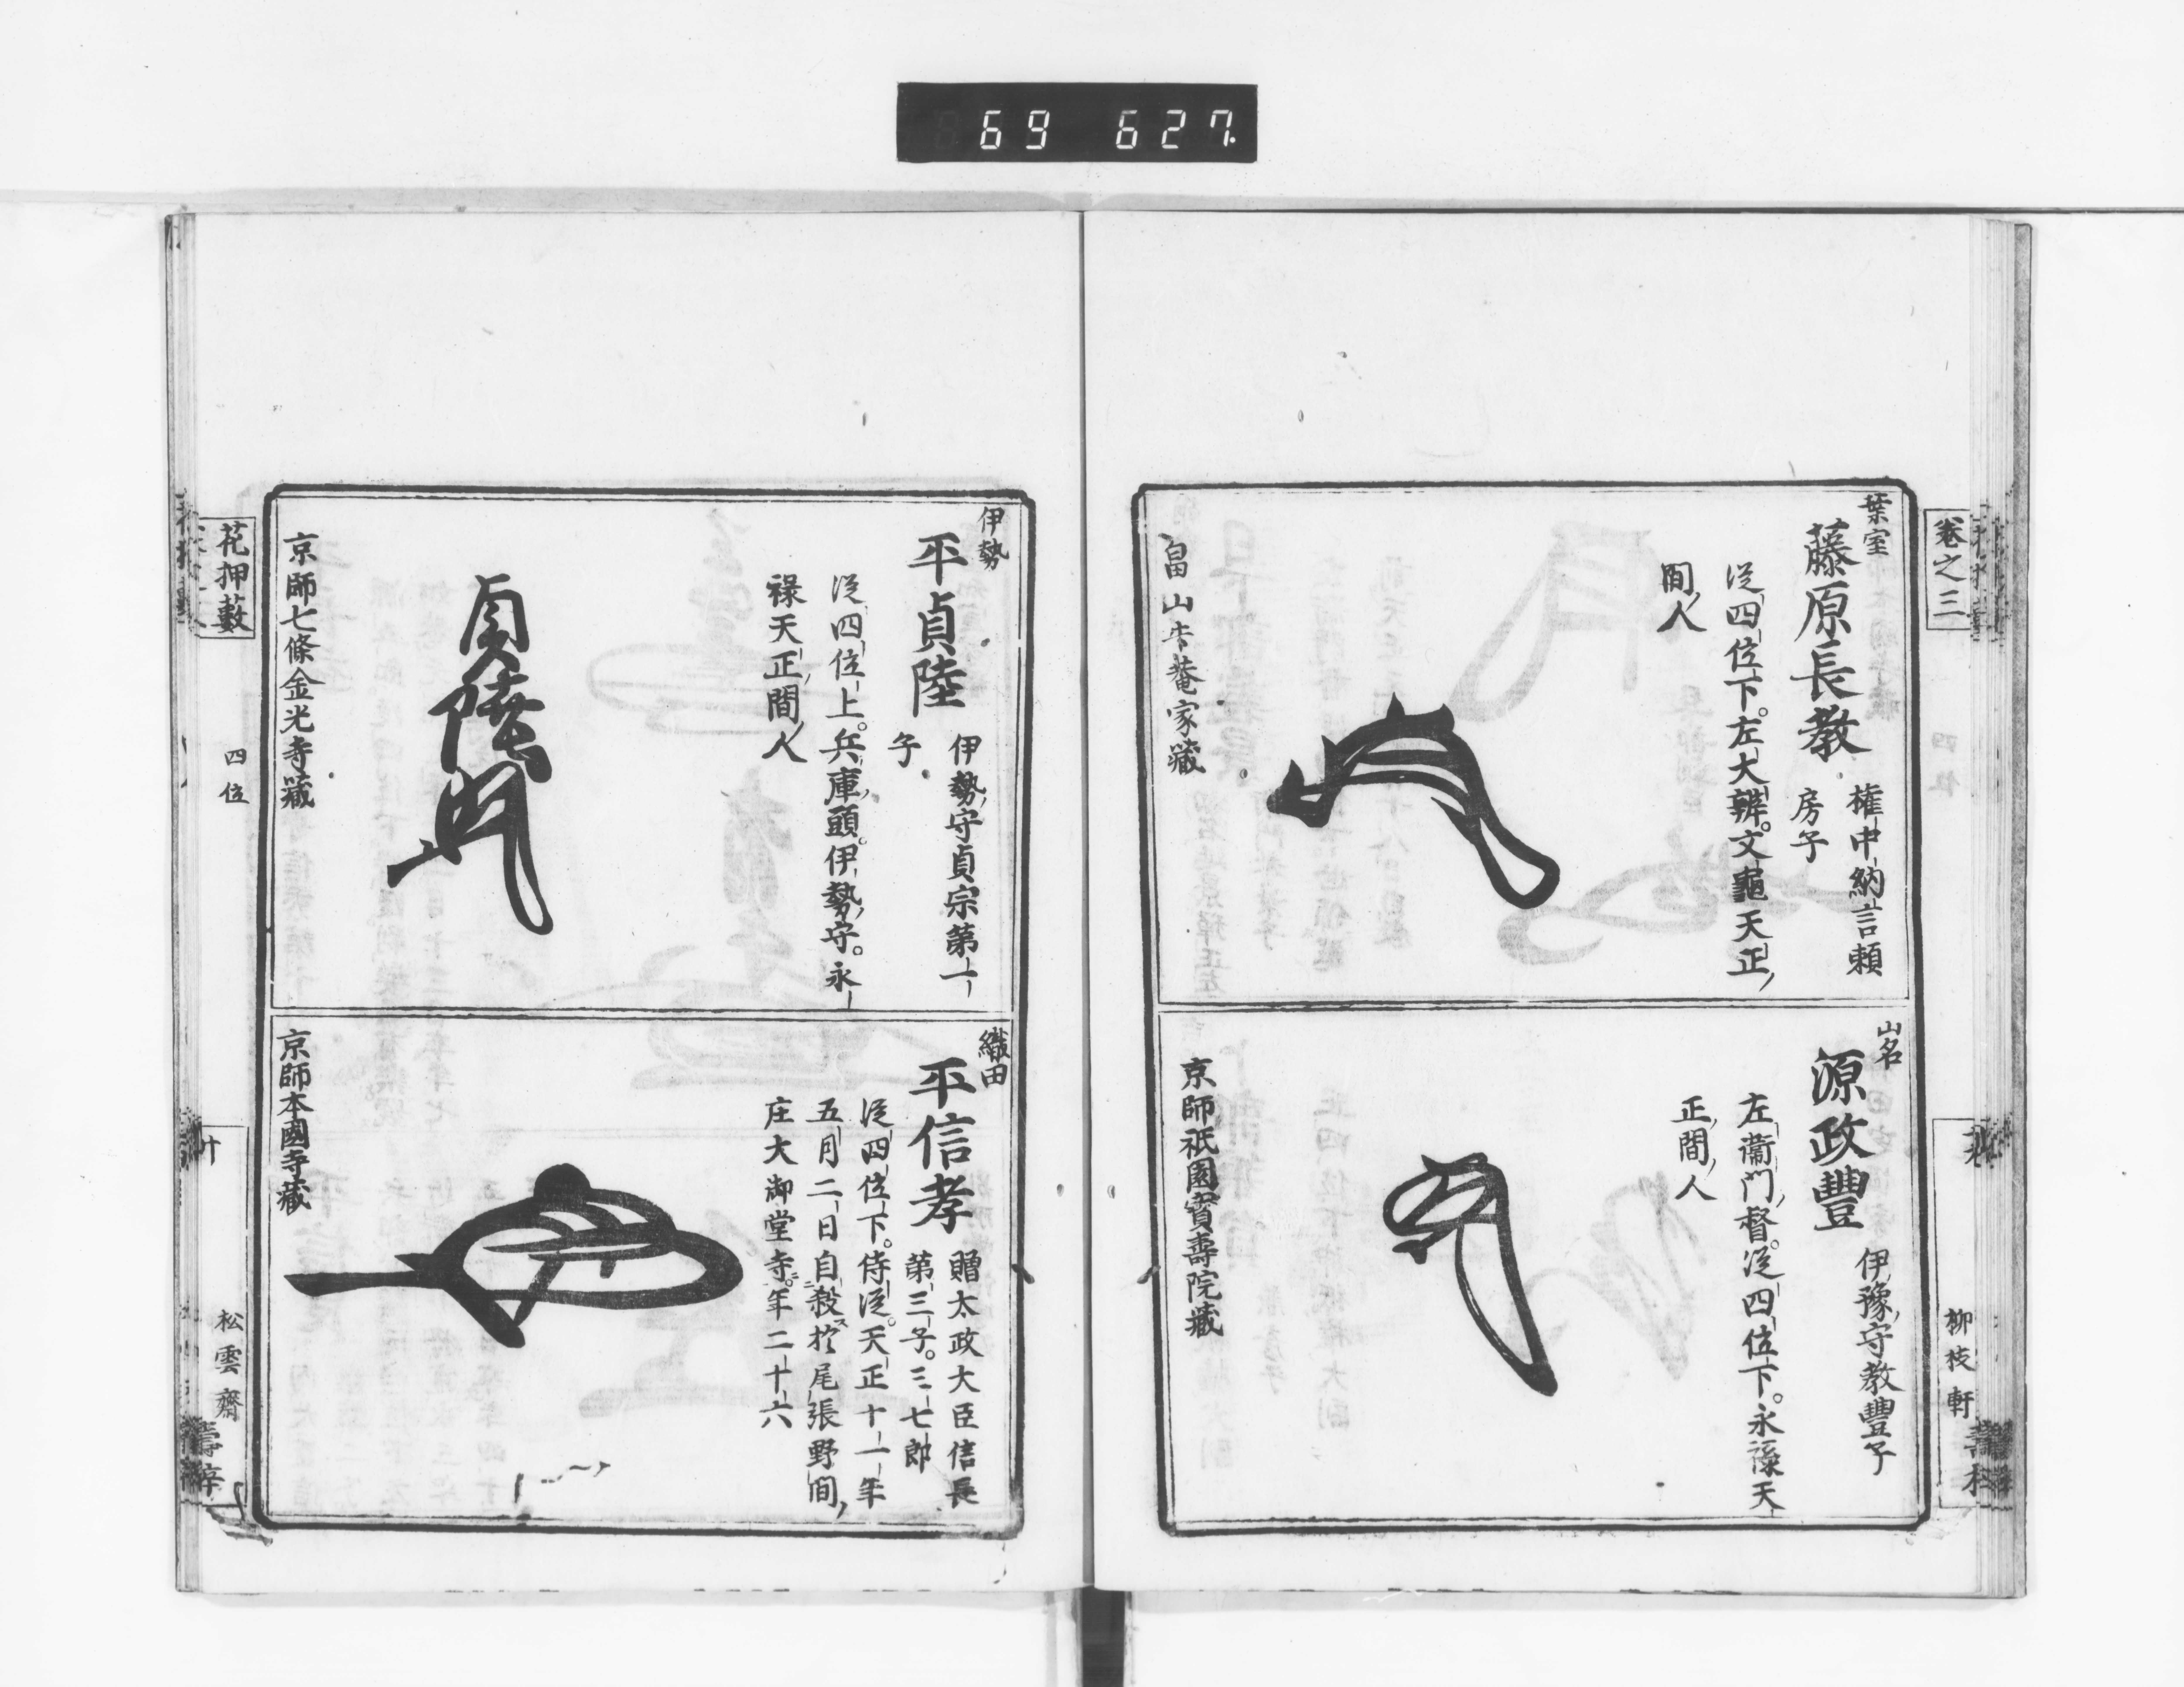 69 627.
卷之三
柳枝軒
葉室
藤原長教
權中納言頼
房子
從四位下。左大辨。文龜天正
間人
畠山牛菴家藏
山名
源政豐
伊豫守教豐子
左衞門督。從四位下。永祿天
正間人
京師祇園寶壽院藏
伊勢
平貞陸
伊勢守貞宗第一
子
從四位上。兵庫頭。伊勢守。永
祿天正間人
貞陸
京師七條金光寺藏
織田
平信孝
贈太政大臣信長
第三子。三七郎
從四位下。侍從。天正十一年
五月二日自殺於尾張野間
庄大御堂寺。年二十六
京師本國寺藏
花押藪
四位
十
松雲齋